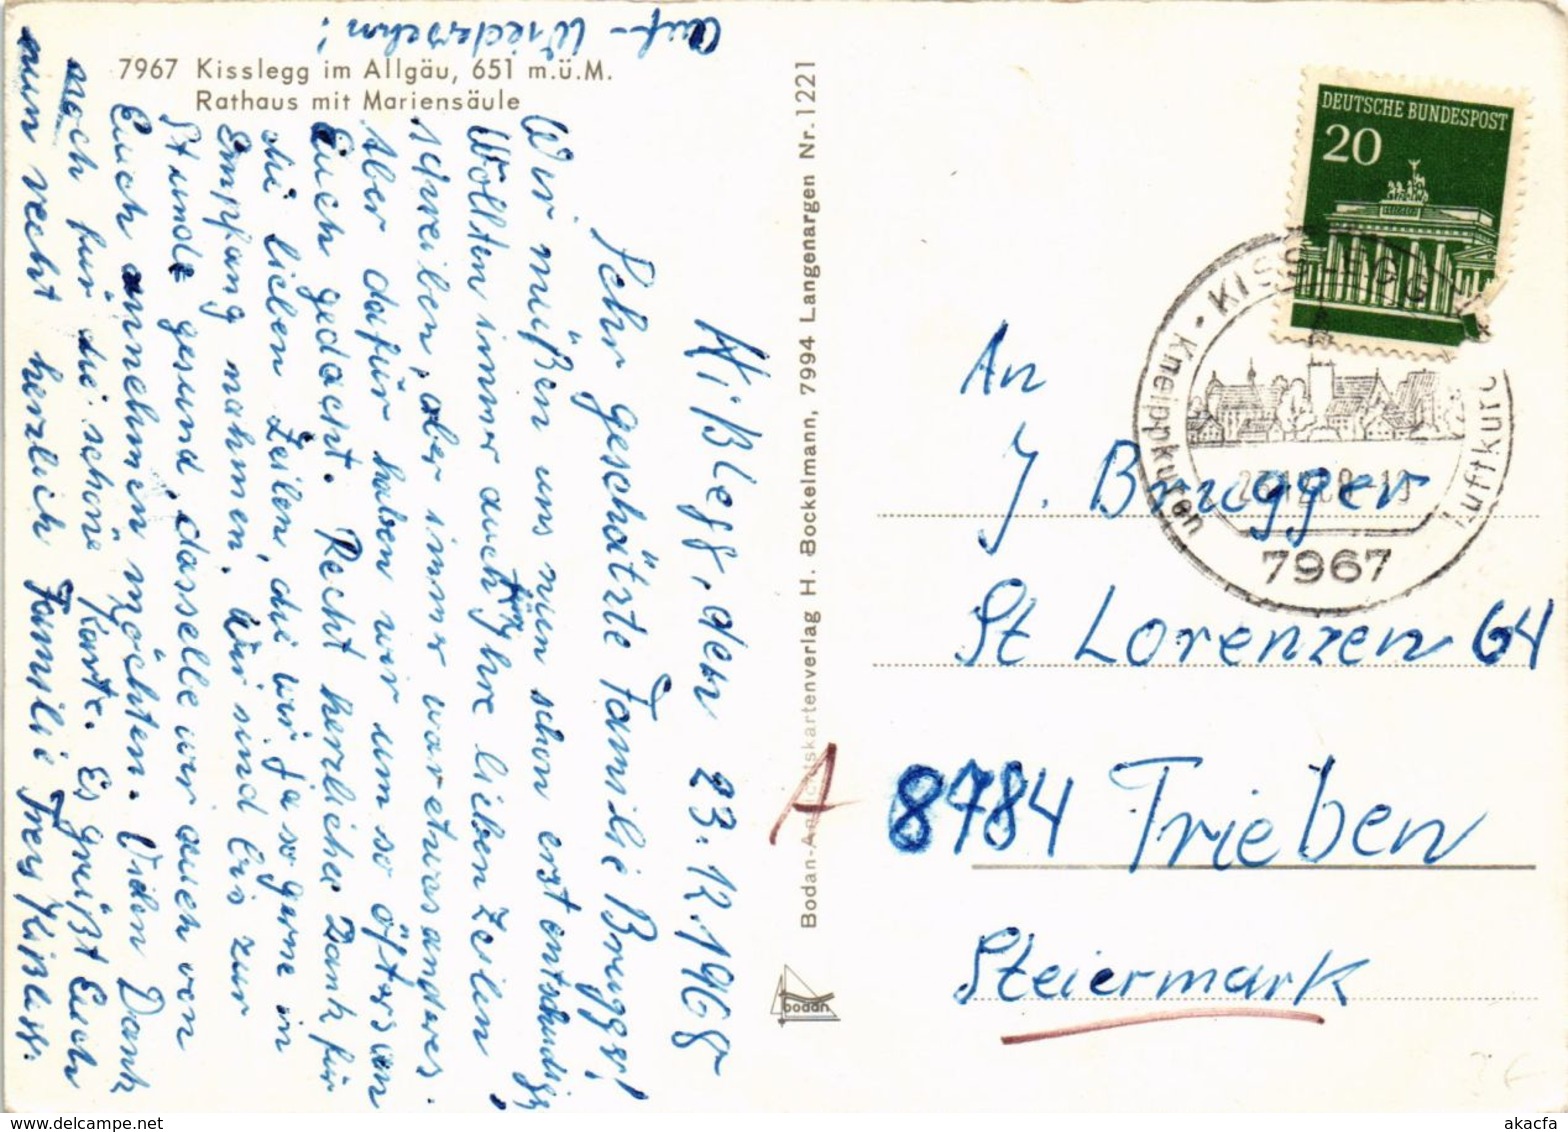 7967 Kisslegg im Allgäu, 651 m.ü.M.
Rathaus mit Mariensäule
Kißlegg, den 23.12.1968
Sehr geschätzte Familie Brugger!
Wir müßen uns nun schon erst entschuldigen
Wollten immer auch Ihre lieben Zeilen
schreiben, aber immer war etwas anderes.
Aber dafür haben wir um so öfters an
Euch gedacht. Recht herzlichen Dank für
die lieben Zeilen, die wir ja so gerne in
Empfang nahmen. Wir sind bis zur
Stunde gesund, dasselbe wir auch von
Euch annehmen möchten. Vielen Dank
noch für die schöne Karte. Es grüßt Euch
nun recht herzlich Familie Frey Kißlegg.
Auf-Wiedersehn!
Bodan-Ansichtskartenverlag H. Bockelmann, 7994 Langenargen Nr. 1221
bodan
DEUTSCHE BUNDESPOST
20
KISSLEGG
Kneippkuren
Luftkuro
7967
An
J. Brugger
St Lorenzen 64
A
8784 Trieben
Steiermark
akacfa
www.delcampe.net